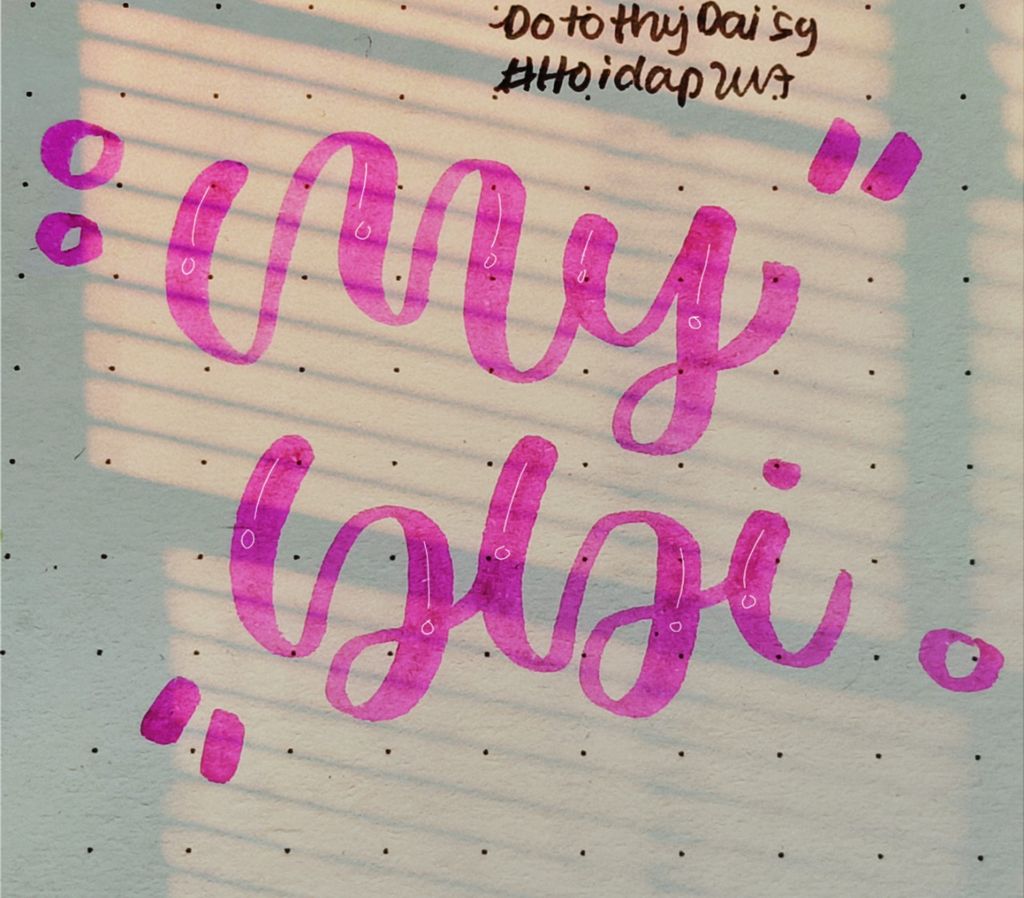 DotothyDaisy
#Hoidap247
: My "
bbi .
"